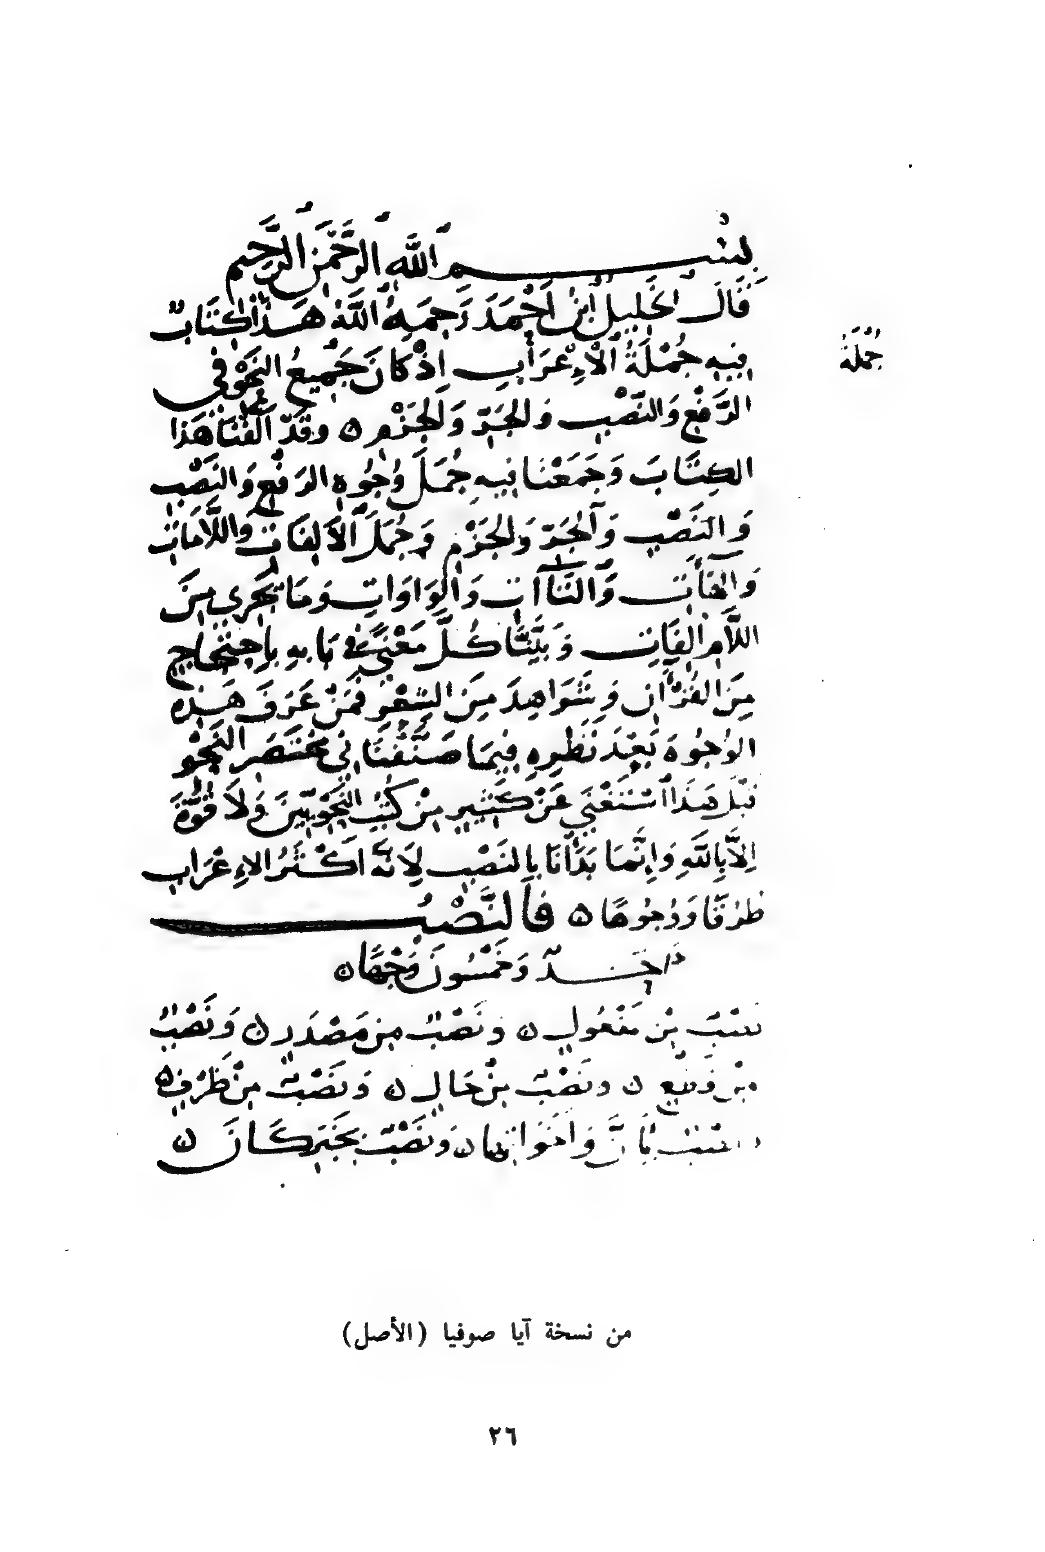 بِسْمِ اللَّهِ الرَّحْمَنِ الرَّحِيمِ
قَالَ الْخَلِيلُ ابْنُ أَحْمَدَ رَحِمَهُ اللَّهُ هَذَا كِتَابٌ
فِيهِ جُمْلَةُ الْإِعْرَابِ إِذْ كَانَ جَمِيعُ النَّحْوِ فِي
جُمْلَةُ
الرَّفْعِ وَالنَّصْبِ وَالْجَرِّ وَالْجَزْمِ ۞ وَقَدْ أَلَّفْنَا هَذَا
الْكِتَابَ وَجَمَعْنَا فِيهِ جُمَلَ وُجُوهِ الرَّفْعِ وَالنَّصْبِ
وَالنَّصْبِ وَالْجَرِّ وَالْجَزْمِ وَجُمَلَ الْأَلِفَاتِ وَاللَّامَاتِ
وَالْهَاءَاتِ وَالتَّاءَاتِ وَالْوَاوَاتِ وَمَا يَجْرِي مِنَ
اللَّامِ الِفَاتِ وَبَيَّنَّا كُلَّ مَعْنًى فِي بَابِهِ بِاحْتِجَاجٍ
مِنَ الْقُرْآنِ وَشَوَاهِدَ مِنَ الشِّعْرِ فَمَنْ عَرَفَ هَذِهِ
الْوُجُوهَ بَعْدَ نَظَرِهِ فِيمَا صَنَّفْنَا فِي مُخْتَصَرِ النَّحْوِ
قَبْلَ هَذَا اسْتَغْنَى عَنْ كَثِيرٍ مِنْ كُتُبِ النَّحْوِيِّينَ وَلَا قُوَّةَ
إِلَّا بِاللَّهِ وَإِنَّمَا بَدَأْنَا بِالنَّصْبِ لِأَنَّهُ أَكْثَرُ الْإِعْرَابِ
طُرُقًا وَوُجُوهًا ۞ فَالنَّصْبُ
أَحَدٌ وَخَمْسُونَ وَجْهًا ۞
نَصْبٌ مِنْ مَفْعُولٍ ۞ وَنَصْبٌ مِنْ مَصْدَرٍ ۞ وَنَصْبٌ
مِنْ قَطْعٍ ۞ وَنَصْبٌ مِنْ حَالٍ ۞ وَنَصْبٌ مِنْ ظَرْفٍ ۞
وَنَصْبٌ بِإِنَّ وَأَخَوَاتِهَا ۞ وَنَصْبٌ بِخَبَرِ كَانَ ۞
من نسخة آيا صوفيا (الأصل)
٢٦